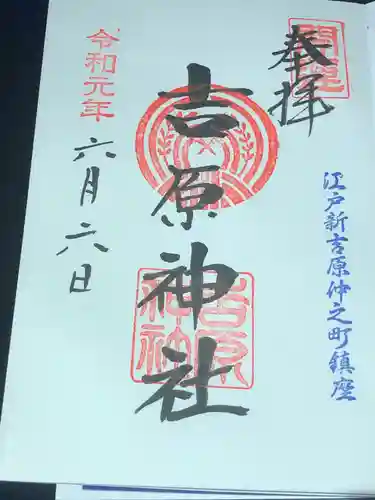 奉拝
開運
江戸新吉原仲之町鎮座
吉原神社
吉原神社
令和元年
六月六日